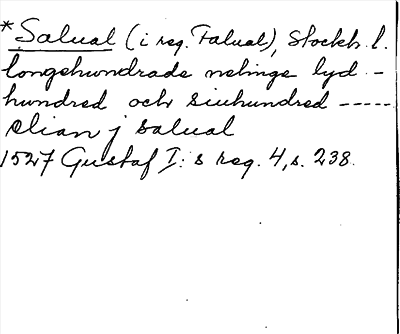 *Salual (i reg. Falual), Stockh. l.
longehundrade nelinge lyd -
hundred och siuhundred -----
elian j salual
1527 Gustaf I:s reg. 4, s. 238.